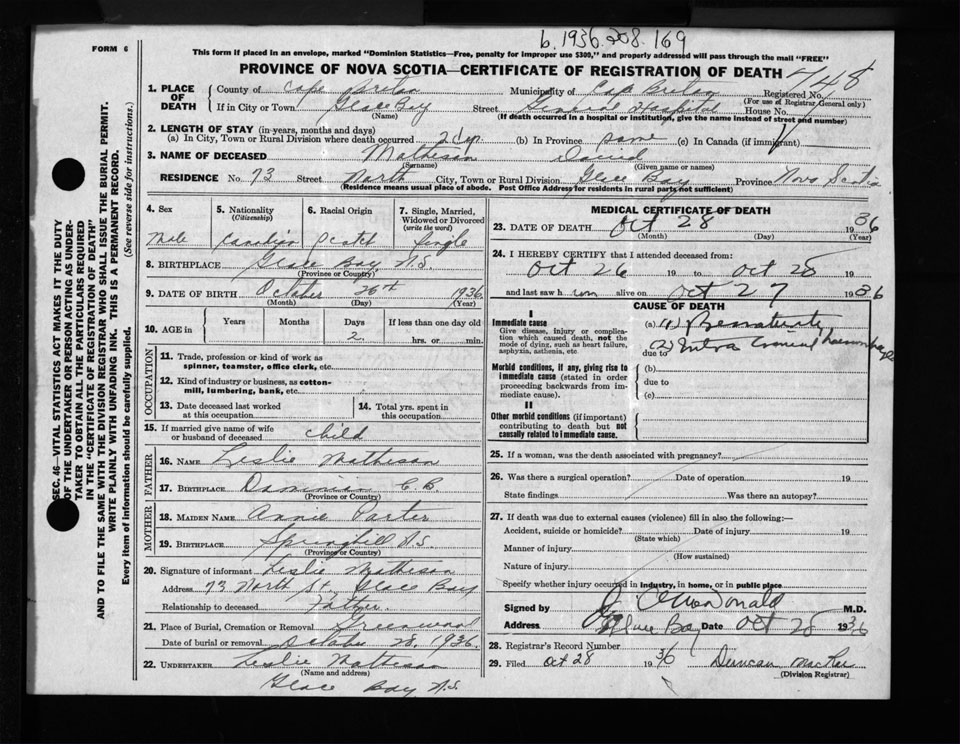 b. 1936. 208. 169
FORM 6
This form if placed in an envelope, marked "Dominion Statistics—Free, penalty for improper use $300," and properly addressed will pass through the mail "FREE"
PROVINCE OF NOVA SCOTIA—CERTIFICATE OF REGISTRATION OF DEATH
1. PLACE OF DEATH County of Cape Breton Municipality of Cape Breton Registered No.
(For use of Registrar General only)
If in City or Town Glace Bay Street General Hospital House No.
(Name) (If death occurred in a hospital or institution, give the name instead of street and number)
2. LENGTH OF STAY (in years, months and days)
(a) In City, Town or Rural Division where death occurred 2 dys (b) In Province same (c) In Canada (if immigrant)
3. NAME OF DECEASED Matheson David
(Surname) (Given name or names)
RESIDENCE No. 73 Street North City, Town or Rural Division Glace Bay Province Nova Scotia
(Residence means usual place of abode. Post Office Address for residents in rural parts not sufficient)
SEC. 46—VITAL STATISTICS ACT MAKES IT THE DUTY
OF THE UNDERTAKER OR PERSON ACTING AS UNDER-
TAKER TO OBTAIN ALL THE PARTICULARS REQUIRED
IN THE "CERTIFICATE OF REGISTRATION OF DEATH"
AND TO FILE THE SAME WITH THE DIVISION REGISTRAR WHO SHALL ISSUE THE BURIAL PERMIT.
WRITE PLAINLY WITH UNFADING INK. THIS IS A PERMANENT RECORD.
Every item of information should be carefully supplied. (See reverse side for instructions.)
4. Sex 5. Nationality 6. Racial Origin 7. Single, Married,
(Citizenship) Widowed or Divorced
(write the word)
Male Canadian Scotch Single
8. BIRTHPLACE Glace Bay N.S.
(Province or Country)
9. DATE OF BIRTH October 26th 1936
(Month) (Day) (Year)
10. AGE in Years Months Days If less than one day old
2 hrs. or min.
OCCUPATION
11. Trade, profession or kind of work as
spinner, teamster, office clerk, etc.
12. Kind of industry or business, as cotton-
mill, lumbering, bank, etc.
13. Date deceased last worked
at this occupation
14. Total yrs. spent in
this occupation
15. If married give name of wife
or husband of deceased child
FATHER
16. NAME Leslie Matheson
17. BIRTHPLACE Dominion C.B.
(Province or Country)
MOTHER
18. MAIDEN NAME Annie Porter
19. BIRTHPLACE Springhill N.S.
(Province or Country)
20. Signature of informant Leslie Matheson
Address 73 North St, Glace Bay
Relationship to deceased Father
21. Place of Burial, Cremation or Removal Greenwood
Date of burial or removal October 28, 1936.
22. UNDERTAKER Leslie Matheson
(Name and address)
Glace Bay N.S.
MEDICAL CERTIFICATE OF DEATH
23. DATE OF DEATH Oct 28 1936
(Month) (Day) (Year)
24. I HEREBY CERTIFY that I attended deceased from:
Oct 26 19 to Oct 28 19
and last saw h im alive on Oct 27 1936
CAUSE OF DEATH
I
Immediate cause
Give disease, injury or complica-
tion which caused death, not the
mode of dying, such as heart failure,
asphyxia, asthenia, etc.
(a) (1) Prematurity
due to (2) Intra Cranial haemorrhage
Morbid conditions, if any, giving rise to
immediate cause (stated in order
proceeding backwards from im-
mediate cause).
(b)
due to
(c)
II
Other morbid conditions (if important)
contributing to death but not
causally related to immediate cause.
25. If a woman, was the death associated with pregnancy?
26. Was there a surgical operation? Date of operation 19
State findings Was there an autopsy?
27. If death was due to external causes (violence) fill in also the following:—
Accident, suicide or homicide? Date of injury 19
(State which)
Manner of injury
(How sustained)
Nature of injury
Specify whether injury occurred in industry, in home, or in public place
Signed by McDonald M.D.
Address Glace Bay Date Oct 28 1936
28. Registrar's Record Number
29. Filed Oct 28 1936 Duncan MacRae
(Division Registrar)